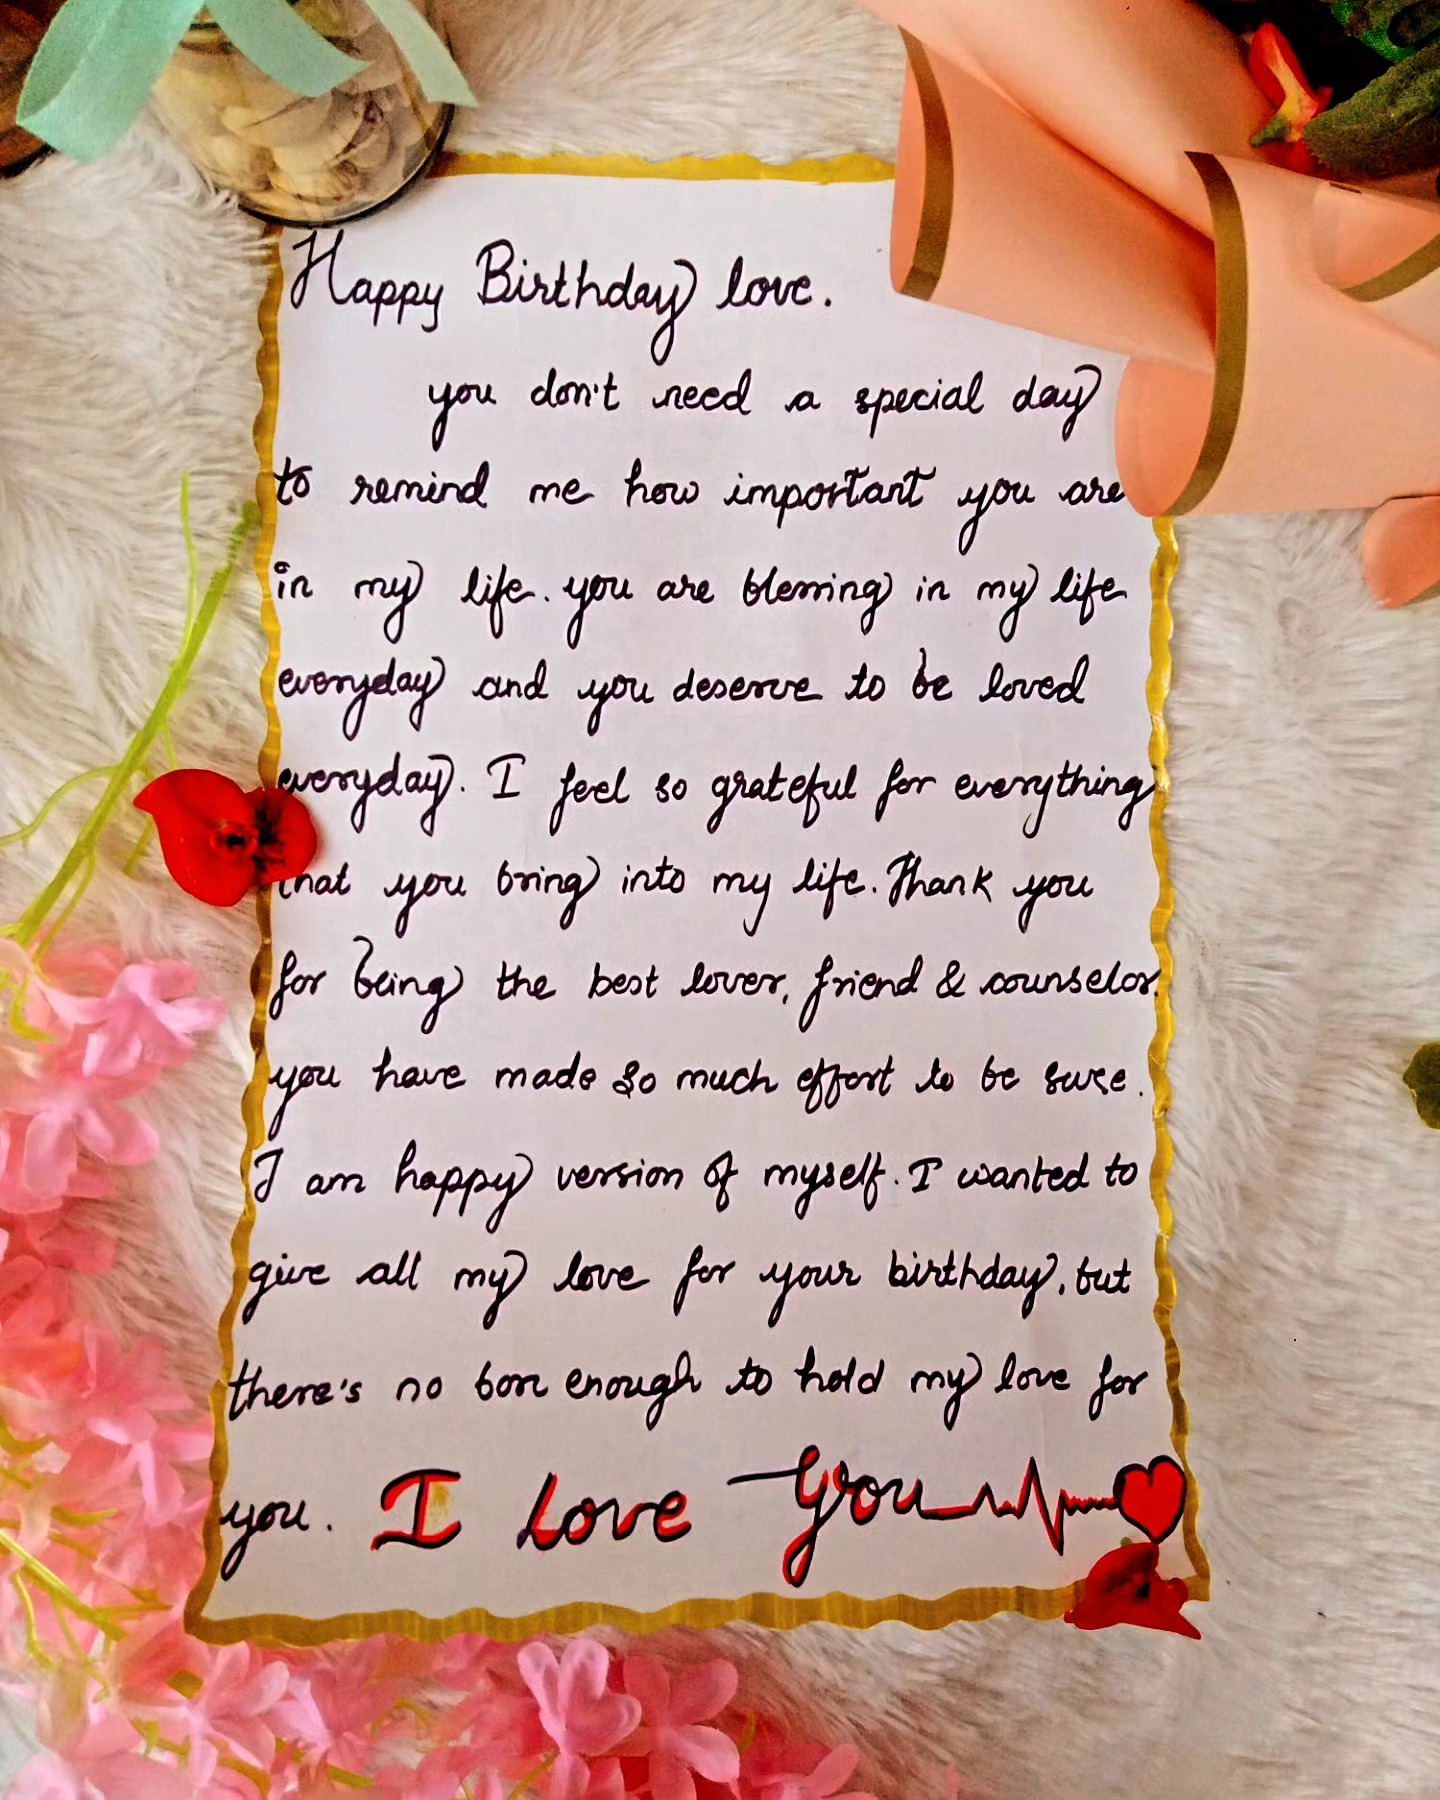 Happy Birthday love.
you don't need a special day
to remind me how important you are
in my life. you are blessing in my life
everyday and you deserve to be loved
everyday. I feel so grateful for everything
that you bring into my life. Thank you
for being the best lover, friend & counselor.
you have made so much effort to be sure.
I am happy version of myself. I wanted to
give all my love for your birthday, but
there's no box enough to hold my love for
you. I Love You